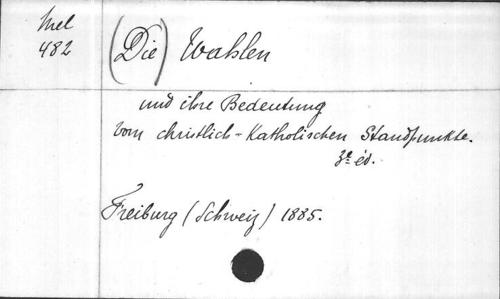 Mel
482
(Die) Wahlen
und ihre Bedeutung
vom christlich-Katholischen Standpunkte.
3e éd.
Freiburg (Schweiz) 1885.